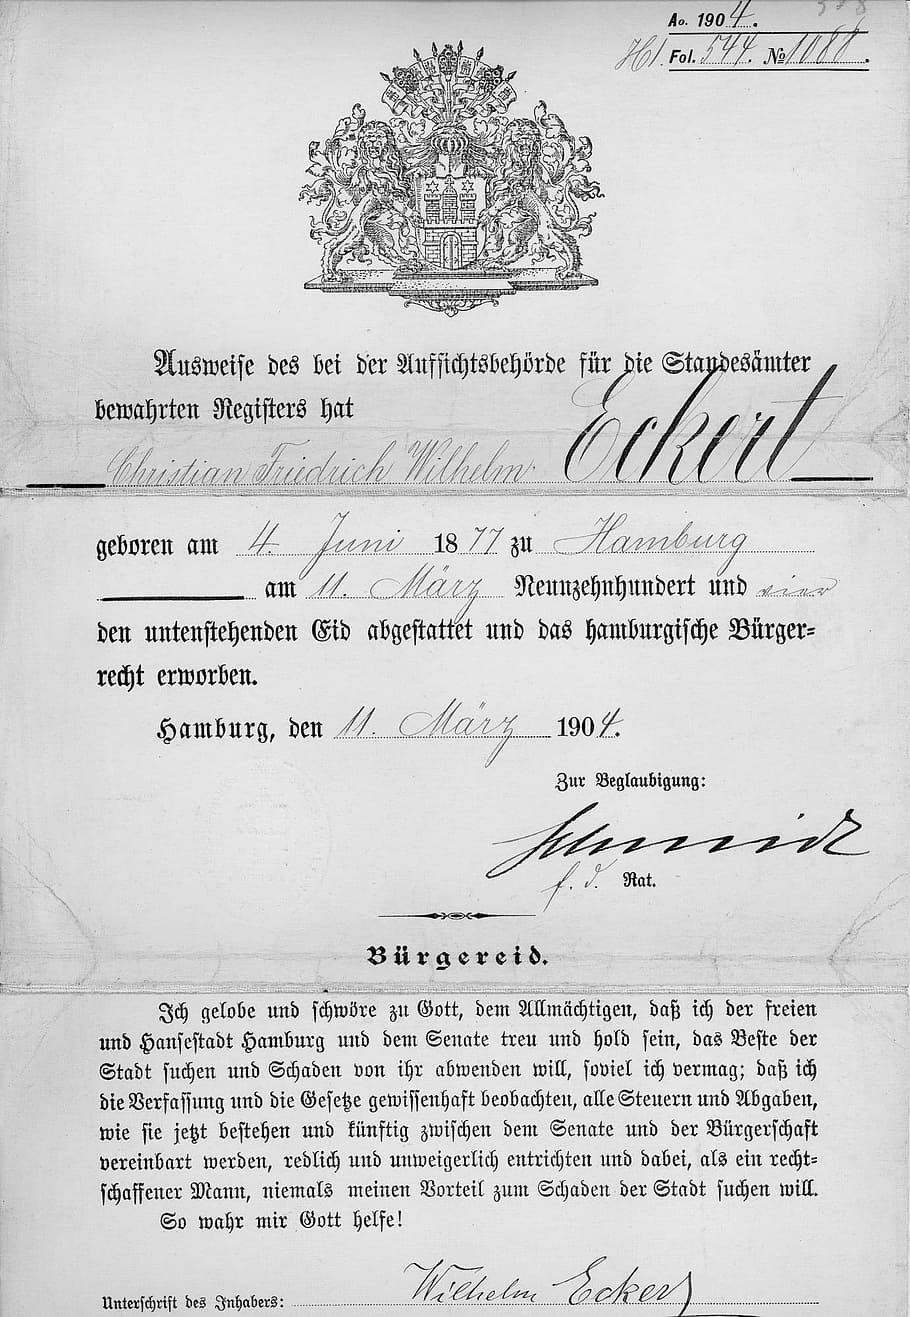 Ao. 1904.
Hl. Fol. 544. No 1088.
Ausweise des bei der Aufsichtsbehörde für die Standesämter
bewahrten Registers hat
Christian Friedrich Wilhelm Eckert
geboren am 4. Juni 1877 zu Hamburg
am 11. März Neunzehnhundert und vier
den untenstehenden Eid abgestattet und das hamburgische Bürger=
recht erworben.
Hamburg, den 11. März 1904.
Zur Beglaubigung:
Schmidt
f. d. Rat.
Bürgereid.
Ich gelobe und schwöre zu Gott, dem Allmächtigen, daß ich der freien
und Hansestadt Hamburg und dem Senate treu und hold sein, das Beste der
Stadt suchen und Schaden von ihr abwenden will, soviel ich vermag; daß ich
die Verfassung und die Gesetze gewissenhaft beobachten, alle Steuern und Abgaben,
wie sie jetzt bestehen und künftig zwischen dem Senate und der Bürgerschaft
vereinbart werden, redlich und unweigerlich entrichten und dabei, als ein recht=
schaffener Mann, niemals meinen Vorteil zum Schaden der Stadt suchen will.
So wahr mir Gott helfe!
Unterschrift des Inhabers: Wilhelm Eckert